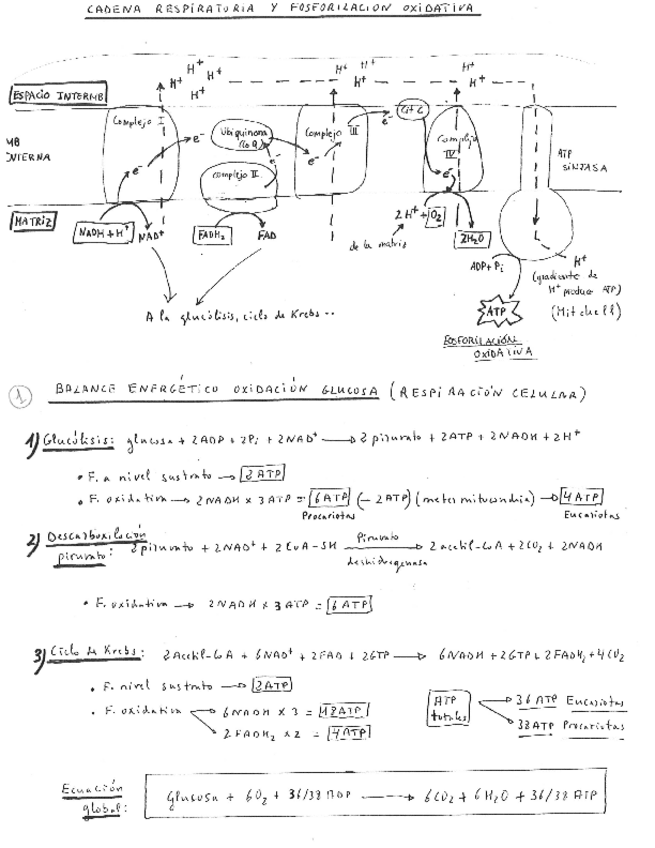 CADENA RESPIRATORIA Y FOSFORILACION OXIDATIVA
H⁺ H⁺ H⁺ H⁺ H⁺ H⁺ H⁺ H⁺ H⁺
ESPACIO INTERMB
Complejo I
Ubiquinona (CoQ)
Complejo III
Cit C
Complejo IV
MB
INTERNA
e⁻ e⁻ e⁻ e⁻ e⁻ e⁻
Complejo II
ATP SINTASA
MATRIZ
NADH + H⁺ NAD⁺
FADH₂ FAD
2H⁺ + O₂
de la matriz
2H₂O
ADP + Pi
H⁺
(gradiente de
H⁺ produce ATP)
ATP
(Mitchell)
A la glucólisis, ciclo de Krebs..
FOSFORILACIÓN
OXIDATIVA
1 BALANCE ENERGÉTICO OXIDACIÓN GLUCOSA (RESPIRACIÓN CELULAR)
1) Glucólisis: glucosa + 2ADP + 2Pi + 2NAD⁺ → 2 piruvato + 2ATP + 2NADH + 2H⁺
• F. a nivel sustrato → 2ATP
• F. oxidativa → 2NADH x 3ATP = 6ATP (-2ATP) (meter mitocondria) → 4ATP
Procariotas Eucariotas
2) Descarboxilación
piruvato: 2piruvato + 2NAD⁺ + 2CoA-SH → 2acetil-CoA + 2CO₂ + 2NADH
Piruvato
deshidrogenasa
• F. oxidativa → 2NADH x 3ATP = 6ATP
3) Ciclo de Krebs: 2Acetil-CoA + 6NAD⁺ + 2FAD + 2GTP → 6NADH + 2GTP + 2FADH₂ + 4CO₂
• F. nivel sustrato → 2ATP
• F. oxidativa → 6NADH x 3 = 18ATP
2FADH₂ x 2 = 4ATP
ATP
totales
36 ATP Eucariotas
38ATP Procariotas
Ecuación
global:
glucosa + 6O₂ + 36/38 ADP → 6CO₂ + 6H₂O + 36/38 ATP